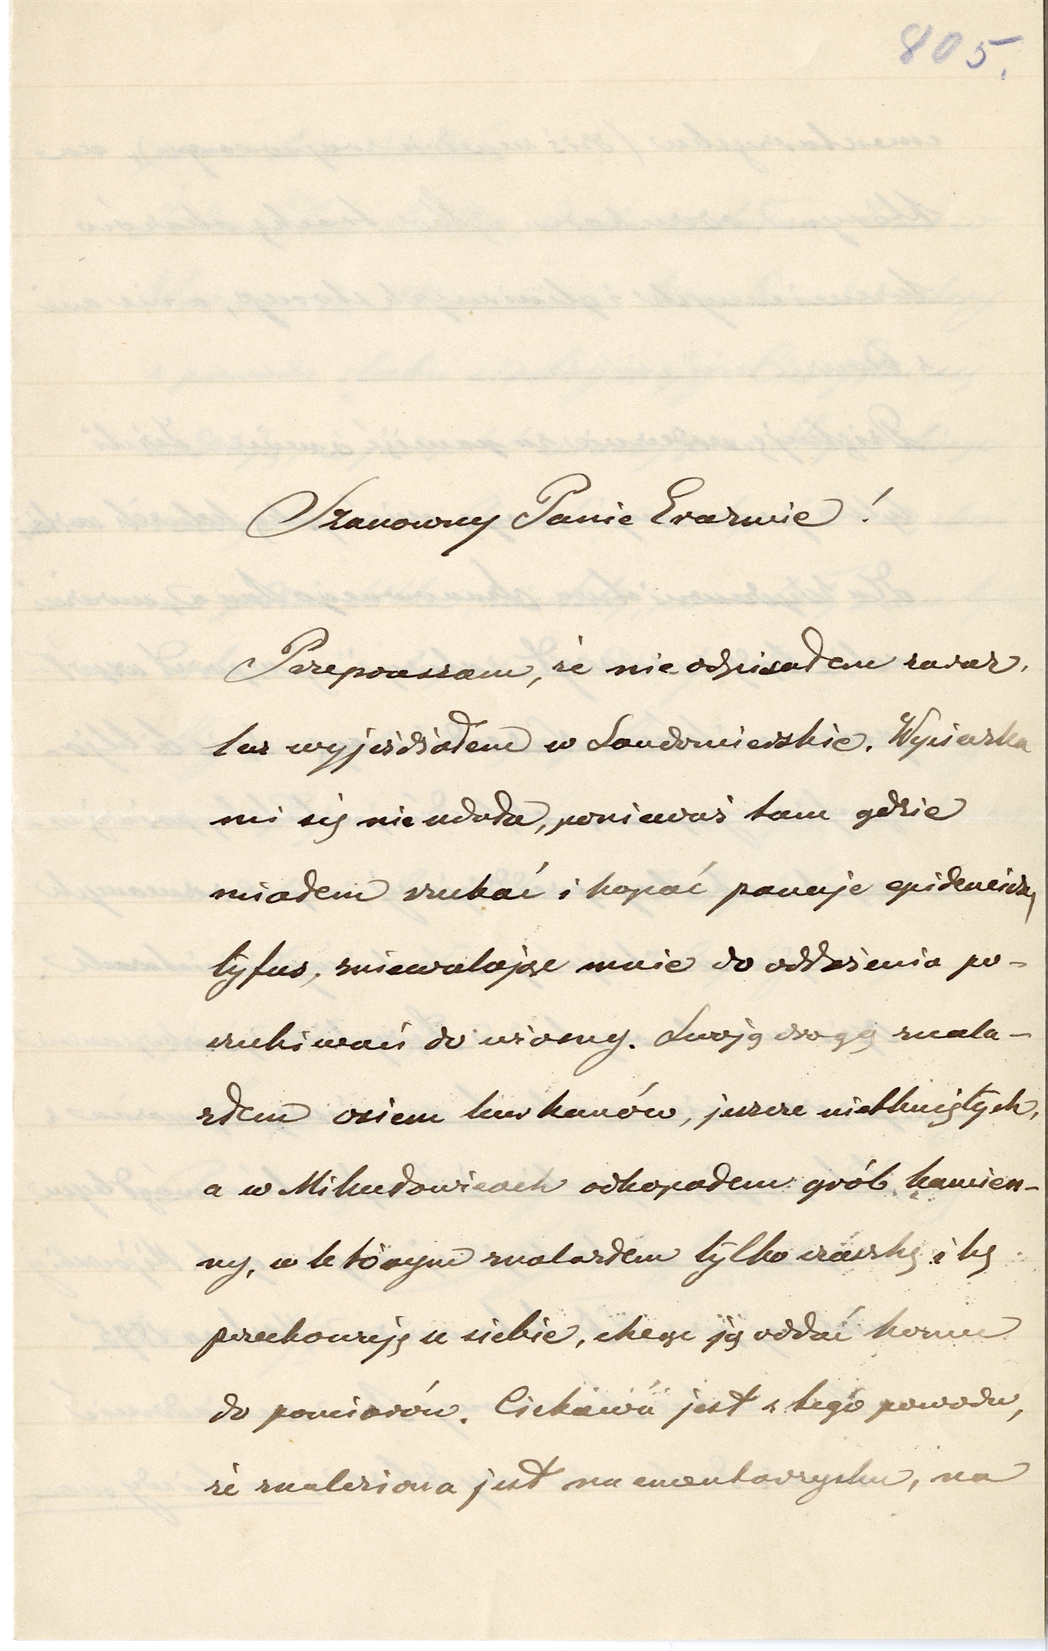 805.
Szanowny Panie Erazmie!
Przepraszam, że nie odpisałem zaraz,
lecz wyjeżdżałem w Sandomierskie. Wycieczka
mi się nie udała, ponieważ tam gdzie
miałem szukać i kopać panuje epidemiczny
tyfus, zniewalając mnie do odłożenia po-
szukiwań do wiosny. Swoją drogą znala-
złem osiem kurhanów, jeszcze nietkniętych,
a w Mikułowicach odkopałem grób kamien-
ny, w którym znalazłem tylko czaszkę i tę
przechowuję u siebie, chcąc ją oddać komu
do pomiarów. Ciekawą jest z tego powodu,
że znaleziona jest na cmentarzysku, na